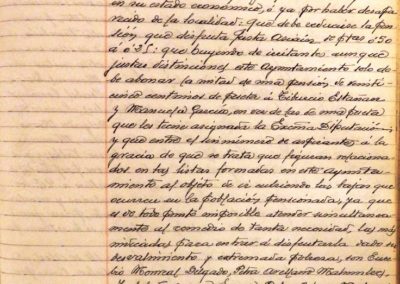 en su estado económico, ó ya por haber desapa-
recido de la localidad: que debe reducirse la pen-
sión que disfruta Justa Asiáin, de ptas 0'50
á 0'35: que huyendo de irritantes aunque
justas distinciones, este Ayuntamiento solo de-
be abonar la mitad de una pensión de veinti-
cinco centimos de peseta á Tiburcio Estañan
y Manuela García, en vez de las de una peseta
que les tiene asignada la Excma Diputación,
y que entre el sin número de aspirantes á la
gracia de que se trata que figuran relaciona-
dos en las listas formadas en este ayunta-
miento al objeto de ir cubriendo las bajas que
ocurren en la población pensionada, ya que
es de todo punto imposible atender simultanea-
mente al remedio de tanta necesidad, las más
indicadas para entrar á disfrutarla dado su
desvalimiento y extremada pobreza, son Euse-
bio Monreal Delgado, Petra Arellano